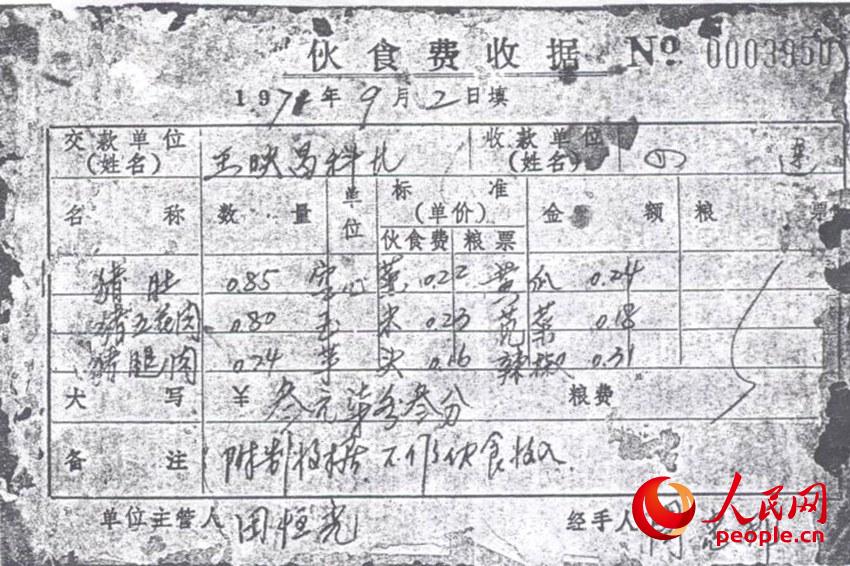 伙食费收据 No 0003950
197 年9月2日填
交款单位(姓名) 王映昌科 收款单位(姓名) 四 连
名称 数量 单位 标准(单价) 金额 粮票
伙食费 粮票
猪肚 0.85 空心菜 0.22 黄瓜 0.24
猪五花肉 0.80 玉米 0.23 苋菜 0.18
猪腿肉 0.74 芋头 0.16 辣椒 0.31
大写 ¥ 叁元柒 叁分 粮费
备注 附 收据 不作伙食收入
单位主管人 田恒光 经手人
人民网
people.cn